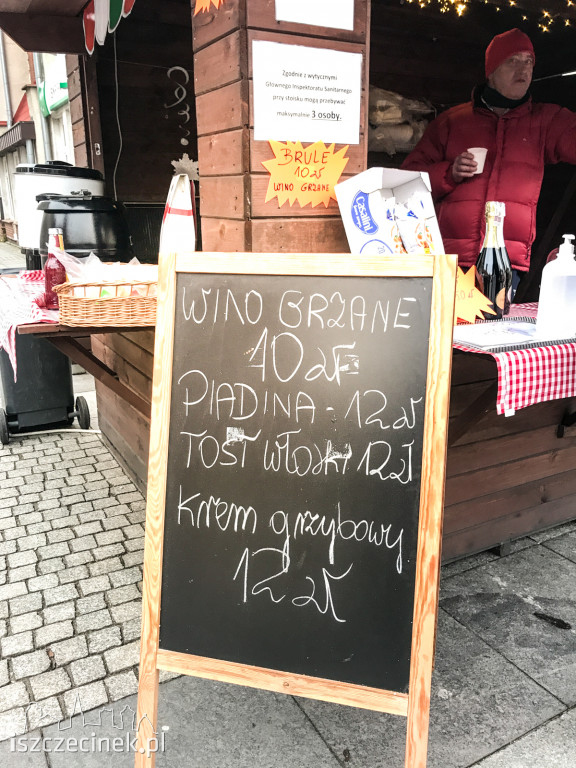 Zgodnie z wytycznymi
Głównego Inspektoratu Sanitarnego
przy stoisku mogą przebywać
maksymalnie 3 osoby.
BRULE
10 zł
WINO GRZANE
WINO GRZANE
10 zł
PIADINA - 12 zł
TOST WŁOSKI 12 zł
krem grzybowy
12 zł
iszczecinek.pl